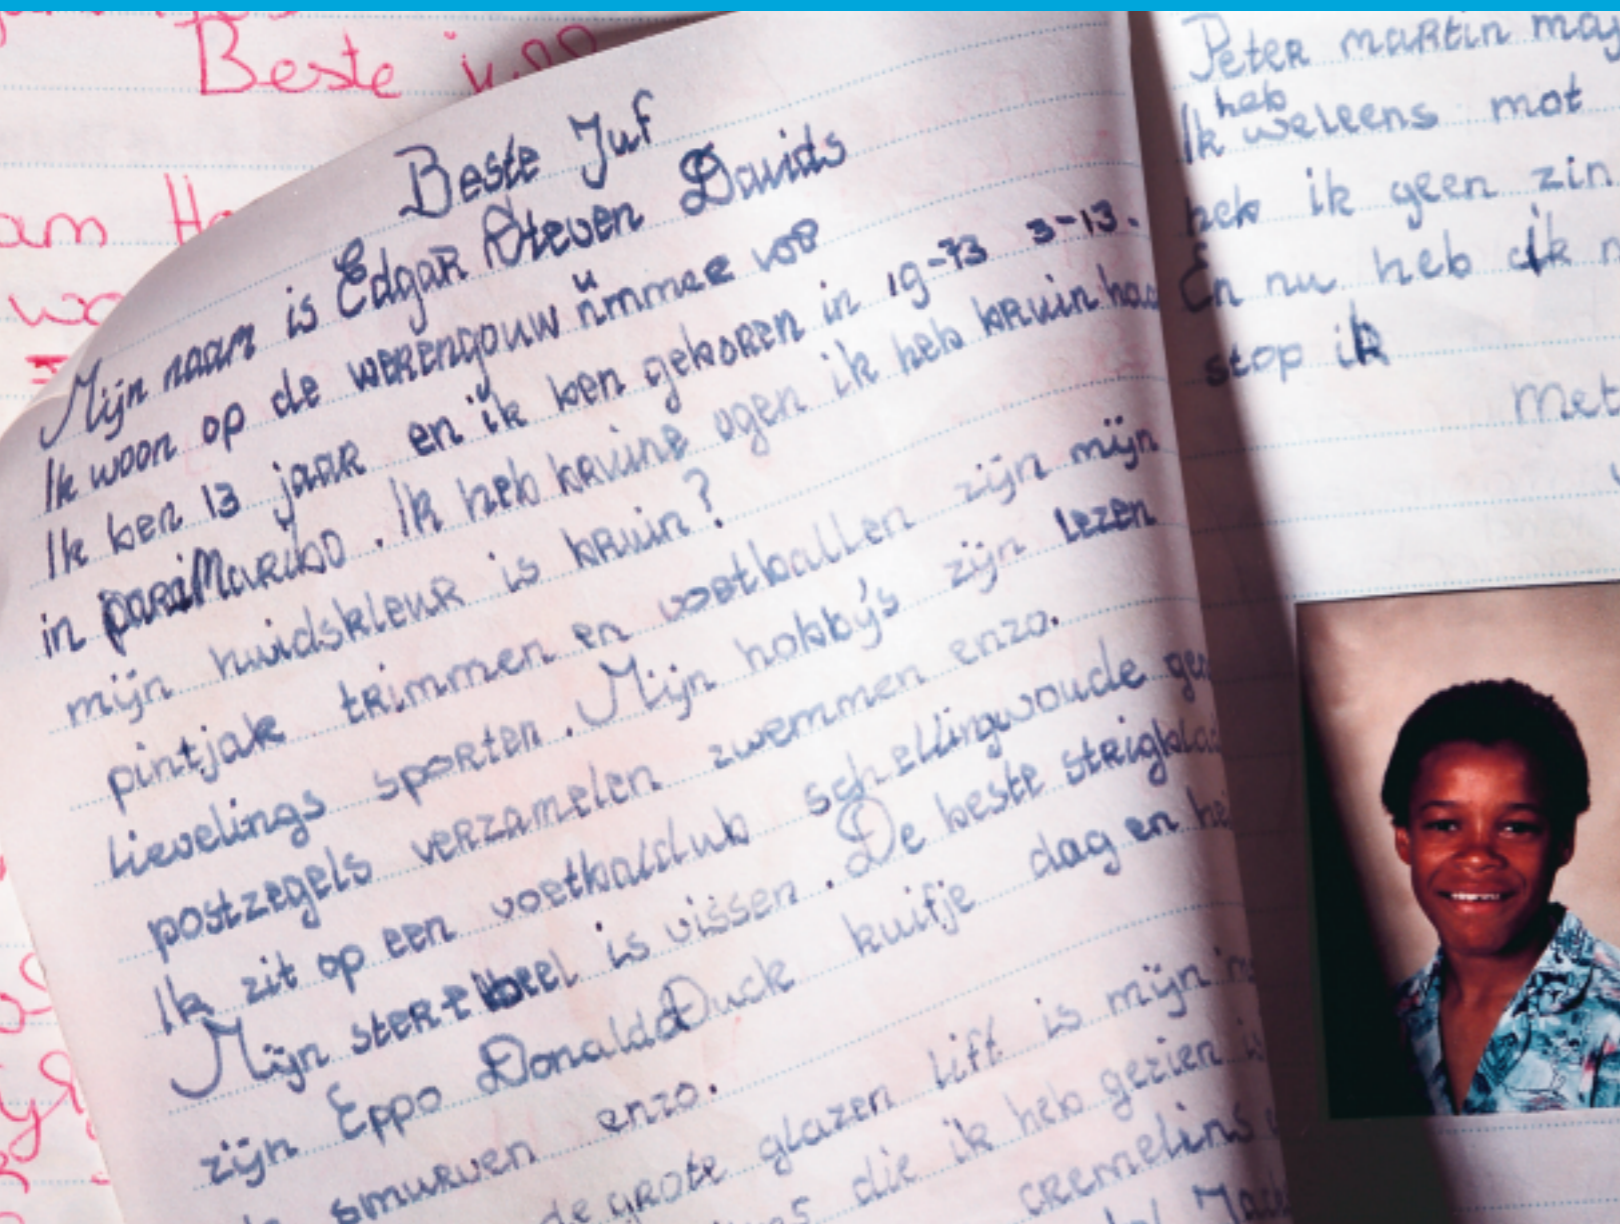 Beste
am
Beste Juf
Mijn naam is Edgar Steven Davids
Ik woon op de werengouw nummer vos
Ik ben 13 jaar en ik ben geboren in 19-73 3-13.
in pariMaribo. Ik heb bruine ogen ik heb bruin haa
mijn huidskleur is bruin?
pintjak trimmen en voetballen zijn mijn
lievelings sporten. Mijn hobby's zijn lezen
postzegels verzamelen zwemmen enzo.
Ik zit op een voetbalclub schellingwoude
Mijn sterrebeel is vissen. De beste
zijn Eppo Donald Duck kuifje dag en he
smurven enzo.
de grote glazen lift is mijn
die ik heb gezien
cremelins
Peter martin
heb
Ik weleens mot
heb ik geen zin
En nu heb ik
stop ik
Met